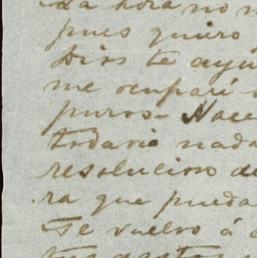 la hora no n
pues quiero
Dios te ayu
me ocuparé
puros – Nace
todavia nada
resolucion de
ra que pueda
Te vuelvo á